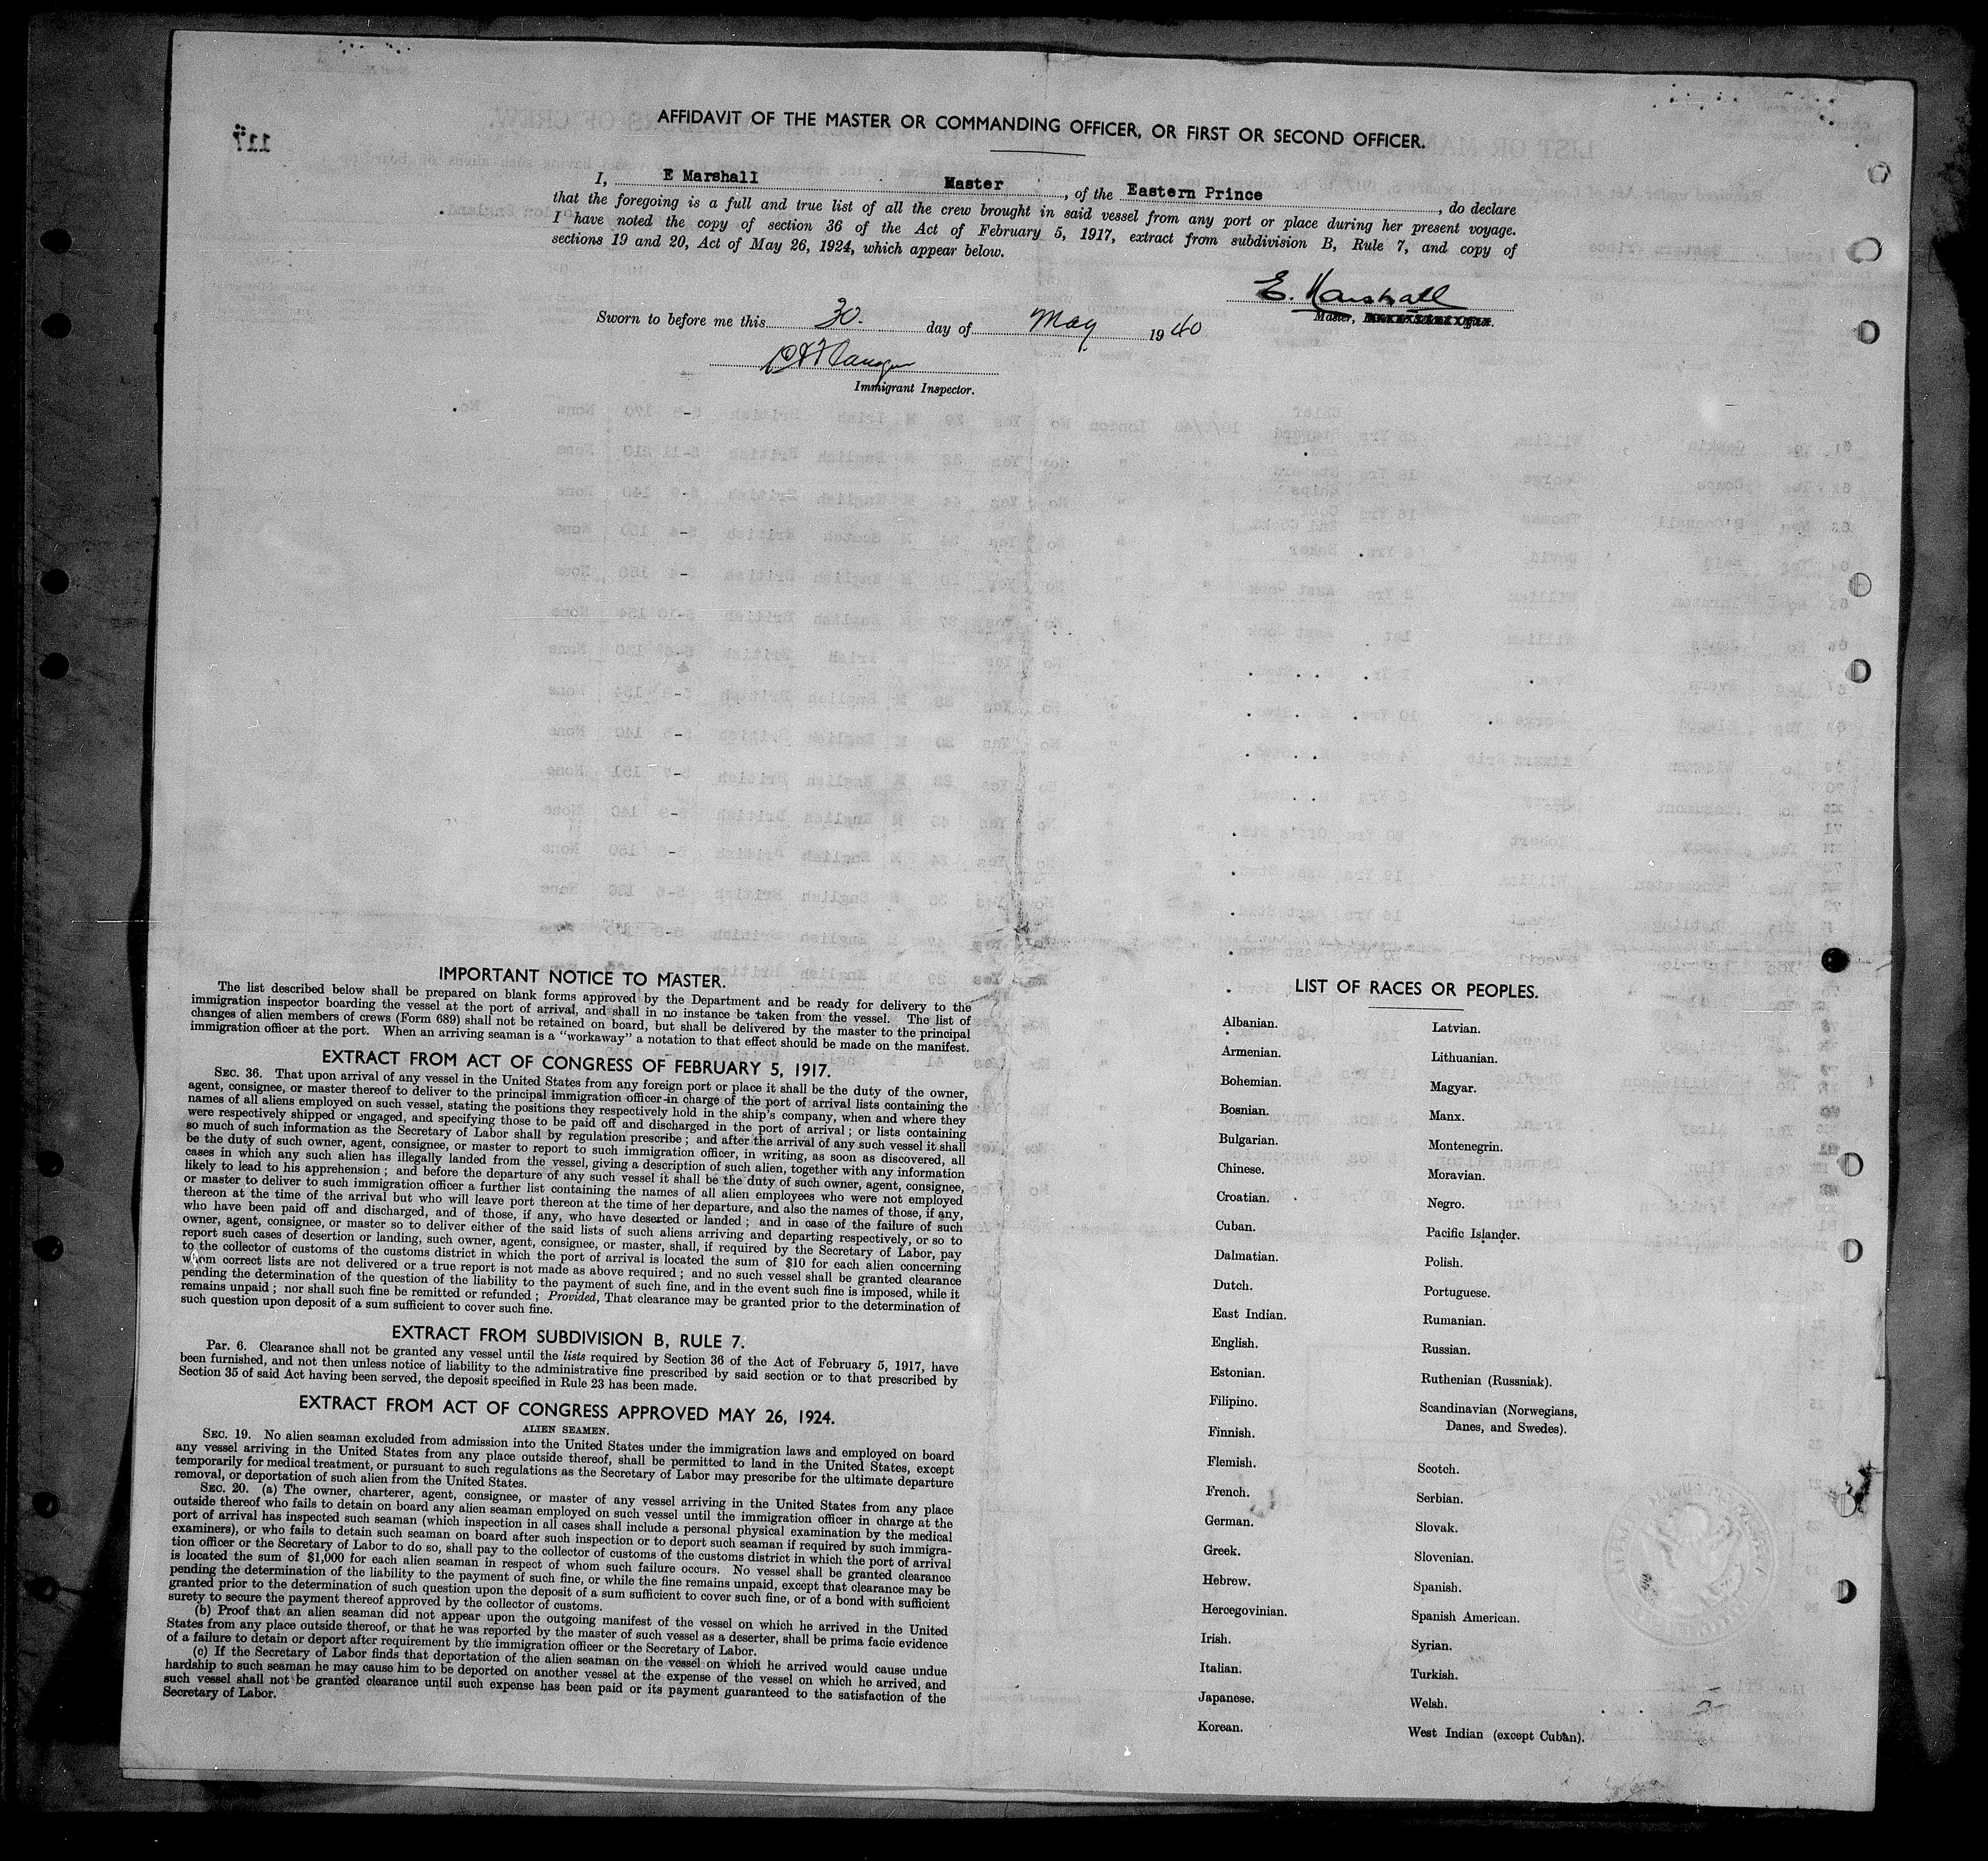 AFFIDAVIT OF THE MASTER OR COMMANDING OFFICER, OR FIRST OR SECOND OFFICER.
I, E Marshall Master, of the Eastern Prince, do declare
that the foregoing is a full and true list of all the crew brought in said vessel from any port or place during her present voyage.
I have noted the copy of section 36 of the Act of February 5, 1917, extract from subdivision B, Rule 7, and copy of
sections 19 and 20, Act of May 26, 1924, which appear below.
E. Marshall
Master,
Sworn to before me this 30. day of May 1940
Immigrant Inspector.
IMPORTANT NOTICE TO MASTER.
The list described below shall be prepared on blank forms approved by the Department and be ready for delivery to the
immigration inspector boarding the vessel at the port of arrival, and shall in no instance be taken from the vessel. The list of
changes of alien members of crews (Form 689) shall not be retained on board, but shall be delivered by the master to the principal
immigration officer at the port. When an arriving seaman is a "workaway" a notation to that effect should be made on the manifest.
EXTRACT FROM ACT OF CONGRESS OF FEBRUARY 5, 1917.
SEC. 36. That upon arrival of any vessel in the United States from any foreign port or place it shall be the duty of the owner,
agent, consignee, or master thereof to deliver to the principal immigration officer in charge of the port of arrival lists containing the
names of all aliens employed on such vessel, stating the positions they respectively hold in the ship's company, when and where they
were respectively shipped or engaged, and specifying those to be paid off and discharged in the port of arrival; or lists containing
so much of such information as the Secretary of Labor shall by regulation prescribe; and after the arrival of any such vessel it shall
be the duty of such owner, agent, consignee, or master to report to such immigration officer, in writing, as soon as discovered, all
cases in which any such alien has illegally landed from the vessel, giving a description of such alien, together with any information
likely to lead to his apprehension; and before the departure of any such vessel it shall be the duty of such owner, agent, consignee,
or master to deliver to such immigration officer a further list containing the names of all alien employees who were not employed
thereon at the time of the arrival but who will leave port thereon at the time of her departure, and also the names of those, if any,
who have been paid off and discharged, and of those, if any, who have deserted or landed; and in case of the failure of such
owner, agent, consignee, or master so to deliver either of the said lists of such aliens arriving and departing respectively, or so to
report such cases of desertion or landing, such owner, agent, consignee, or master, shall, if required by the Secretary of Labor, pay
to the collector of customs of the customs district in which the port of arrival is located the sum of $10 for each alien concerning
whom correct lists are not delivered or a true report is not made as above required; and no such vessel shall be granted clearance
pending the determination of the question of the liability to the payment of such fine, and in the event such fine is imposed, while it
remains unpaid; nor shall such fine be remitted or refunded; Provided, That clearance may be granted prior to the determination of
such question upon deposit of a sum sufficient to cover such fine.
EXTRACT FROM SUBDIVISION B, RULE 7.
Par. 6. Clearance shall not be granted any vessel until the lists required by Section 36 of the Act of February 5, 1917, have
been furnished, and not then unless notice of liability to the administrative fine prescribed by said section or to that prescribed by
Section 35 of said Act having been served, the deposit specified in Rule 23 has been made.
EXTRACT FROM ACT OF CONGRESS APPROVED MAY 26, 1924.
ALIEN SEAMEN.
SEC. 19. No alien seaman excluded from admission into the United States under the immigration laws and employed on board
any vessel arriving in the United States from any place outside thereof, shall be permitted to land in the United States, except
temporarily for medical treatment, or pursuant to such regulations as the Secretary of Labor may prescribe for the ultimate departure
removal, or deportation of such alien from the United States.
SEC. 20. (a) The owner, charterer, agent, consignee, or master of any vessel arriving in the United States from any place
outside thereof who fails to detain on board any alien seaman employed on such vessel until the immigration officer in charge at the
port of arrival has inspected such seaman (which inspection in all cases shall include a personal physical examination by the medical
examiners), or who fails to detain such seaman on board after such inspection or to deport such seaman if required by such immigra-
tion officer or the Secretary of Labor to do so, shall pay to the collector of customs of the customs district in which the port of arrival
is located the sum of $1,000 for each alien seaman in respect of whom such failure occurs. No vessel shall be granted clearance
pending the determination of the liability to the payment of such fine, or while the fine remains unpaid, except that clearance may be
granted prior to the determination of such question upon the deposit of a sum sufficient to cover such fine, or of a bond with sufficient
surety to secure the payment thereof approved by the collector of customs.
(b) Proof that an alien seaman did not appear upon the outgoing manifest of the vessel on which he arrived in the United
States from any place outside thereof, or that he was reported by the master of such vessel as a deserter, shall be prima facie evidence
of a failure to detain or deport after requirement by the immigration officer or the Secretary of Labor.
(c) If the Secretary of Labor finds that deportation of the alien seaman on the vessel on which he arrived would cause undue
hardship to such seaman he may cause him to be deported on another vessel at the expense of the vessel on which he arrived, and
such vessel shall not be granted clearance until such expense has been paid or its payment guaranteed to the satisfaction of the
Secretary of Labor.
LIST OF RACES OR PEOPLES.
Albanian.
Armenian.
Bohemian.
Bosnian.
Bulgarian.
Chinese.
Croatian.
Cuban.
Dalmatian.
Dutch.
East Indian.
English.
Estonian.
Filipino.
Finnish.
Flemish.
French.
German.
Greek.
Hebrew.
Hercegovinian.
Irish.
Italian.
Japanese.
Korean.
Latvian.
Lithuanian.
Magyar.
Manx.
Montenegrin.
Moravian.
Negro.
Pacific Islander.
Polish.
Portuguese.
Rumanian.
Russian.
Ruthenian (Russniak).
Scandinavian (Norwegians,
Danes, and Swedes).
Scotch.
Serbian.
Slovak.
Slovenian.
Spanish.
Spanish American.
Syrian.
Turkish.
Welsh.
West Indian (except Cuban).